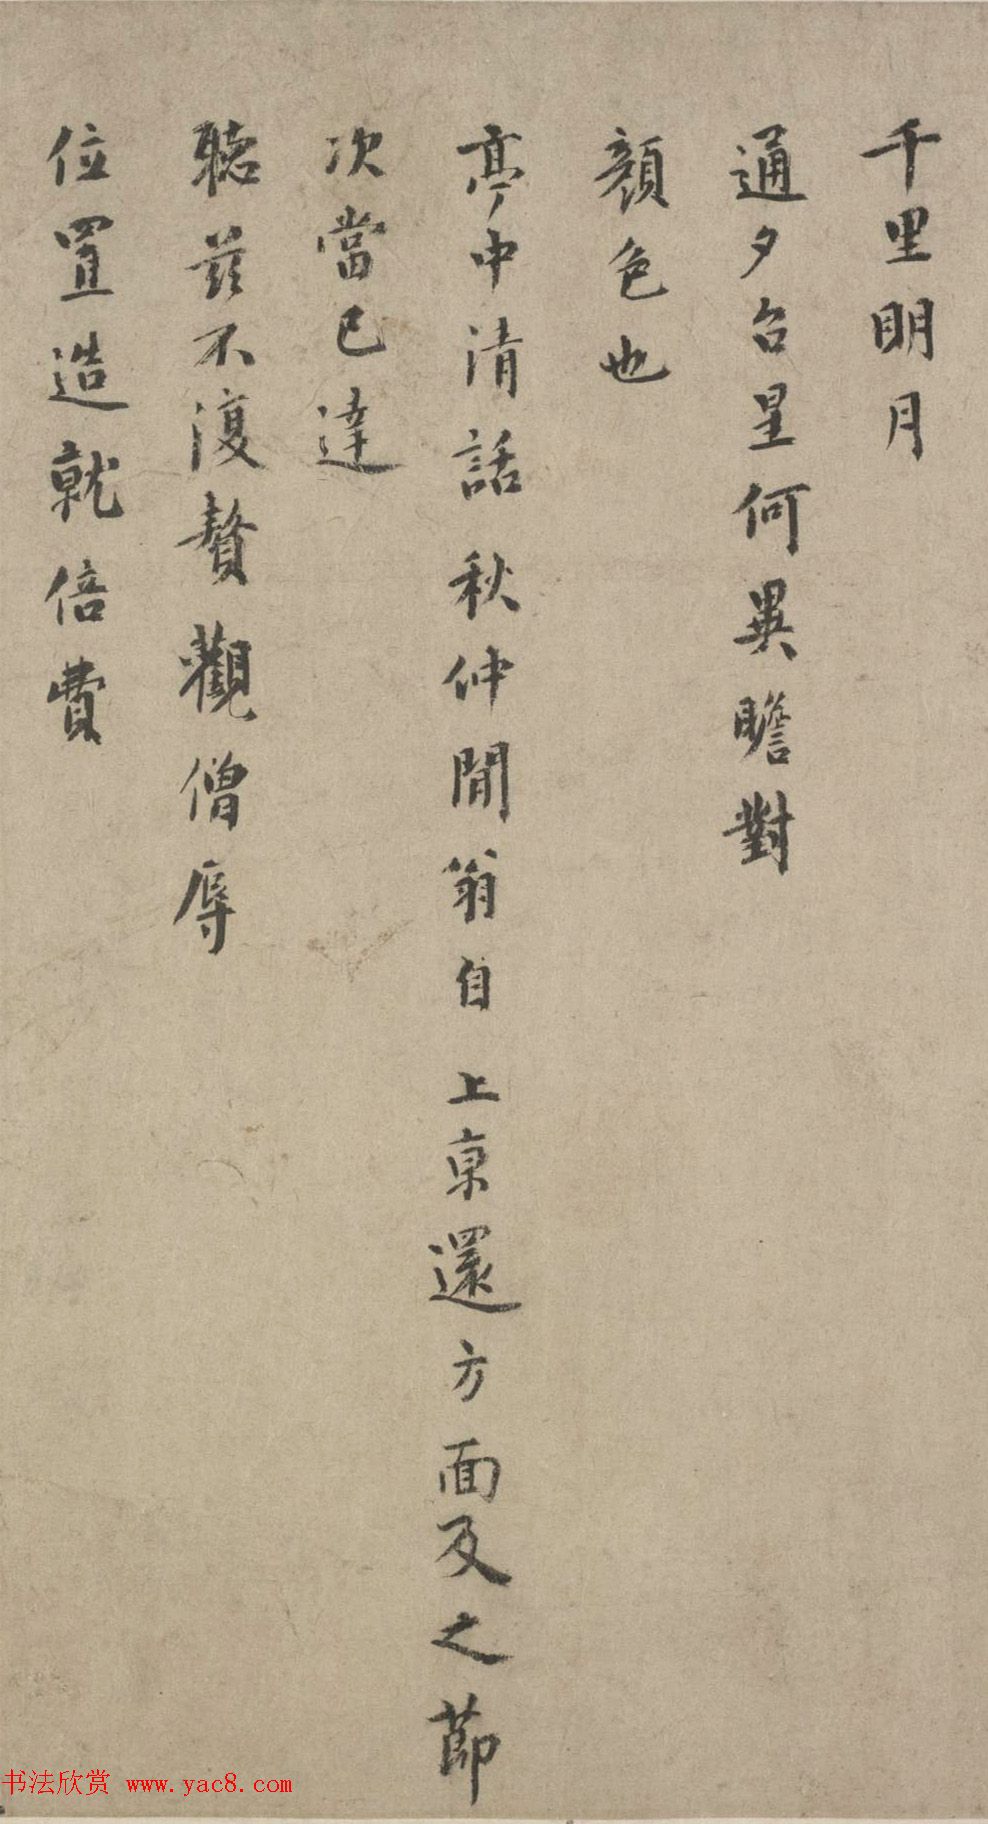 千里明月
通夕台星何異瞻對
顔色也
亭中清話秋仲閒翁自上京還方面及之節
次當已達
聴茲不復贅觀僧辱
位置造就倍費
书法欣赏 www.yac8.com